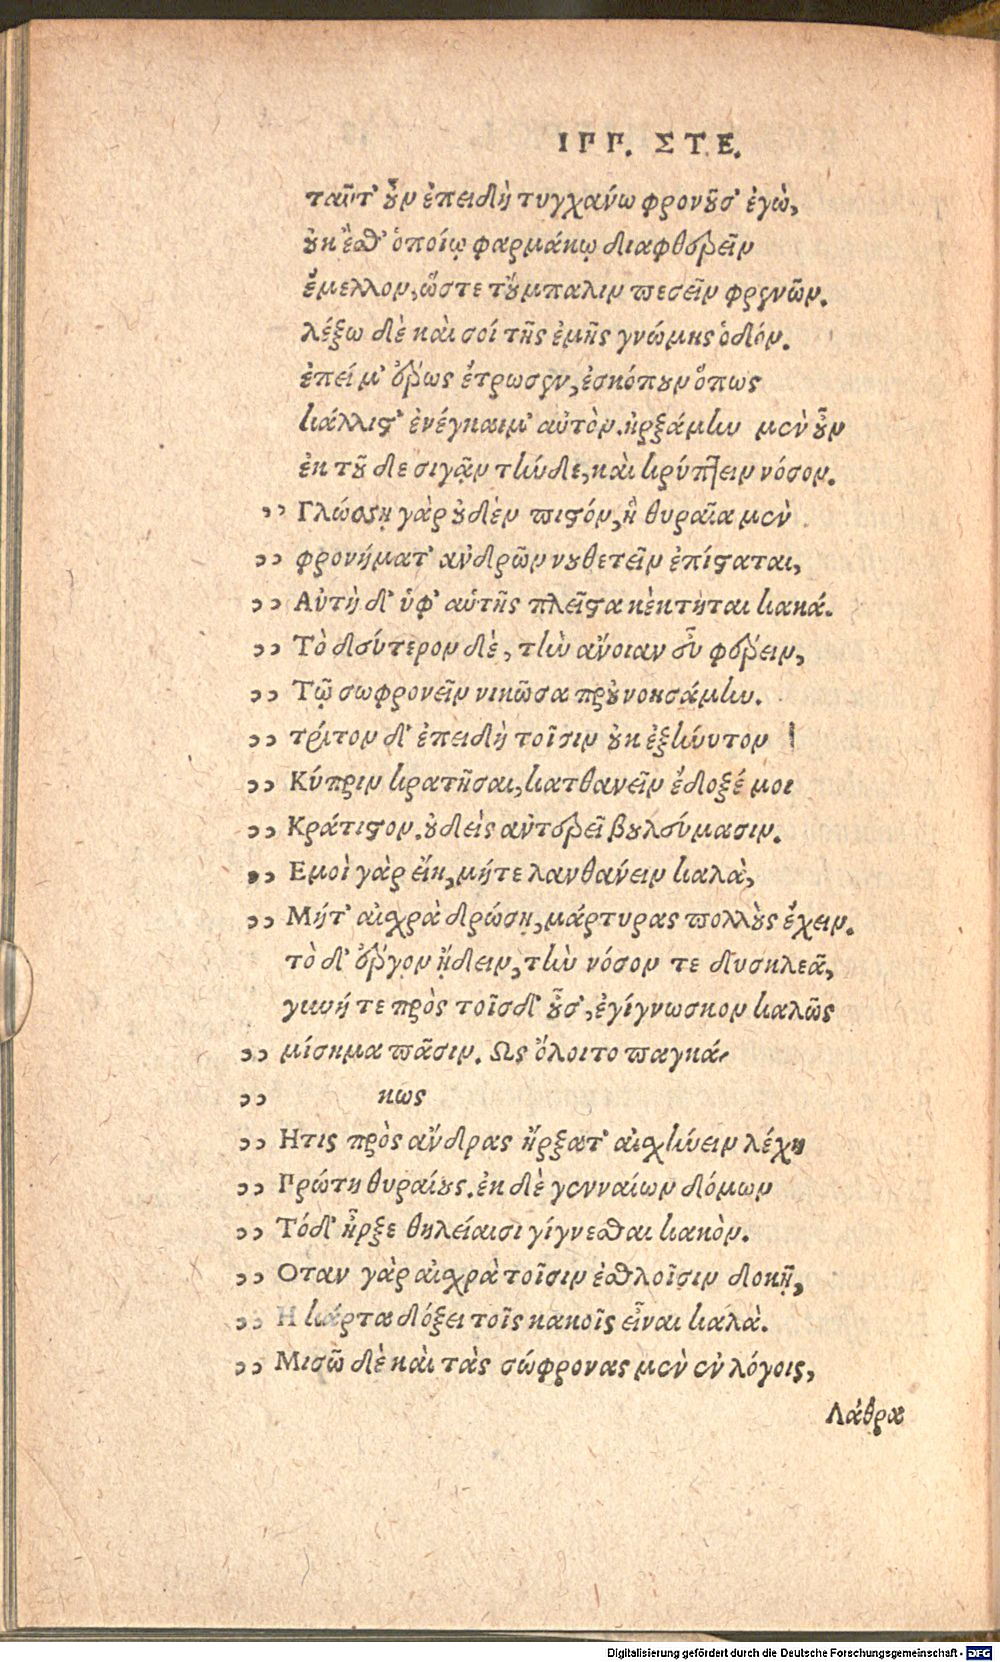 ΙΓΓ. ΣΤΕ.
ταῦτ' οὖν ἐπειδὴ τυγχάνω φρονοῦσ' ἐγὼ,
οὐκ ἔσθ' ὁποίῳ φαρμάκῳ διαφθερεῖν
ἔμελλον, ὥστε τοὔμπαλιν πεσεῖν φρενῶν.
λέξω δὲ καὶ σοί τῆς ἐμῆς γνώμης ὁδόν.
ἐπεί μ' ἔρως ἔτρωσεν, ἐσκόπουν ὅπως
κάλλιστ' ἐνέγκαιμ' αὐτὸν. ἠρξάμην μὲν οὖν
ἐκ τοῦ δε σιγᾷν τήνδε, καὶ κρύπτειν νόσον.
,, Γλώσσῃ γὰρ οὐδὲν πιστόν, ἣ θυραῖα μὲν
,, φρονήματ' ἀνδρῶν νουθετεῖν ἐπίσταται,
,, Αὐτὴ δ' ὑφ' αὑτῆς πλεῖστα κὲκτηται κακά.
,, Τὸ δεύτερον δὲ, τὴν ἄνοιαν εὖ φέρειν,
,, Τῷ σωφρονεῖν νικῶσα προὐνοησάμην.
,, τρίτον δ' ἐπειδὴ τοῖσιν οὐκ ἐξήνυτον
,, Κύπριν κρατῆσαι, κατθανεῖν ἔδοξέ μοι
,, Κράτιστον. οὐδεὶς ἀντερεῖ βουλεύμασιν.
,, Εμοὶ γὰρ εἴη, μήτε λανθάνειν καλὰ,
,, Μήτ' αἰσχρὰ δρώσῃ, μάρτυρας πολλοὺς ἔχειν.
τὸ δ' ἔργον ᾔδειν, τὴν νόσον τε δυσκλεᾶ,
γυνή τε πρὸς τοῖσδ' οὖσ', ἐγίγνωσκον καλῶς
,, μίσημα πᾶσιν. Ως ὄλοιτο παγκά-
,, κως
,, Ητις πρὸς ἄνδρας ἤρξατ' αἰσχύνειν λέχη
,, Πρώτη θυραίους. ἐκ δὲ γενναίων δόμων
,, Τόδ' ἦρξε θηλείαισι γίγνεσθαι κακὸν.
,, Οταν γὰρ αἰσχρὰ τοῖσιν ἐσθλοῖσιν δοκῇ,
,, Η κάρτα δόξει τοῖς κακοῖς εἶναι καλὰ.
,, Μισῶ δὲ καὶ τὰς σώφρονας μὲν ἐν λόγοις,
Λάθρα
Digitalisierung gefördert durch die Deutsche Forschungsgemeinschaft - DFG